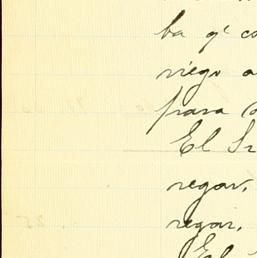 ba qe co
riego a
para
El Sr
regar,
regar,
El